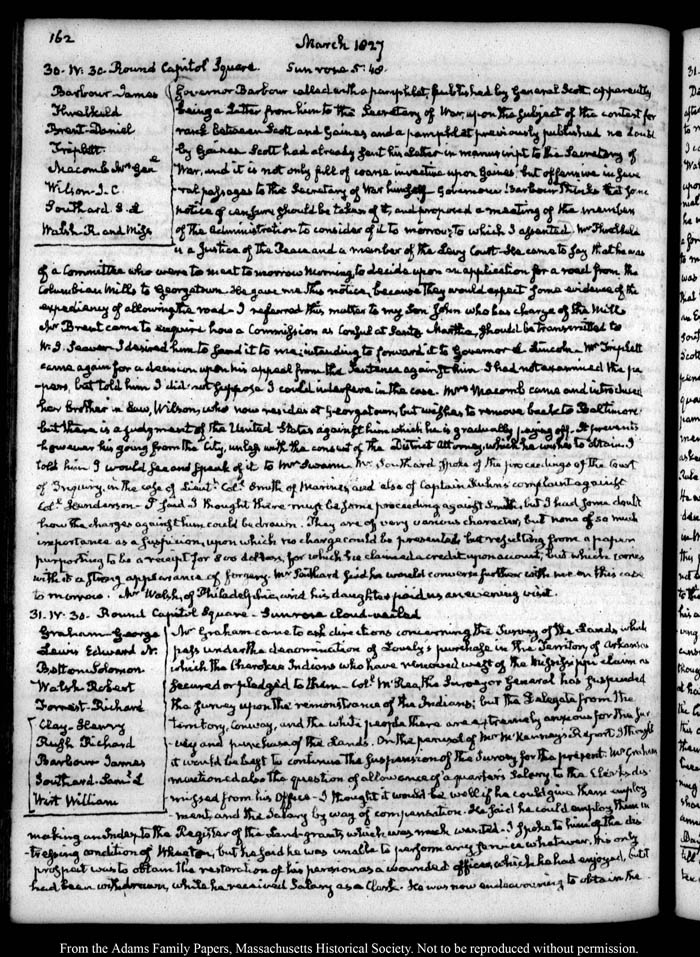 162
March 1827
30. IV. 30. Round Capitol Square. Sun rose 5:48.
Barbour James
Thralkeld
Brent Daniel
Triplett
Macomb Mrs Genl
Wilson J. C
Southard S. L
Walsh R. and Miss
Governor Barbour called with a pamphlet, published by General Scott, apparently
being a Letter from him to the Secretary of War, upon the subject of the contest for
rank between Scott and Gaines and a pamphlet previously published no doubt
by Gaines. Scott had already sent his Letter in manuscript to the Secretary of
War, and it is not only full of coarse invective upon Gaines, but offensive in seve
ral passages to the Secretary of War himself. Governor Barbour thinks that some
notice of censure should be taken of it, and proposed a meeting of the members
of the administration to consider of it to morrow; to which I assented. Mr Thralkeld
is a Justice of the Peace and a member of the Levy Court. He came to say that he was
of a Committee who were to meet to morrow morning, to decide upon an application for a road from the
Columbian Mills to Georgetown. He gave me this notice, because they would expect some evidence of the
expediency of allowing the road. I referred this matter to my Son John who has charge of the Mills
Mr Brent came to enquire how a Commission as Consul at Santa Martha, should be transmitted to
W. J. Seaver I desired him to send it to me; intending to forward it to Governor L. Lincoln. Mr Triplett
came again for a decision upon his appeal from the Sentence against him. I had not examined the pa
pers, but told him I did not suppose I could interfere in the case. Mrs Macomb came and introduced
her brother in Law, Wilson, who now resides at Georgetown, but wishes to remove back to Baltimore
but there is a judgment of the United States against him which he is gradually paying off. It prevents
however his going from the City, unless with the consent of the District Attorney, which he wishes to obtain. I
told him I would see and speak of it to Mr Swann. Mr Southard spoke of the proceedings of the Court
of Inquiry, in the case of Lieutt Coll Smith of Marines, and also of Captain Kuhn's complaint against
Coll Henderson. I said I thought there must be some proceeding against Smith, but I had some doubt
how the charges against him could be drawn. They are of very various character, but none of so much
importance as a suspicion, upon which no charge could be presented but resulting from a paper
purporting to be a receipt for 800 dollars, for which he claimed a credit upon account, but which carries
with it a strong appearance of forgery. Mr Southard said he would converse further with me on this case
to morrow. Mr Walsh, of Philadelphia, and his daughter paid us an evening visit.
31. IV. 30. Round Capitol Square. Sunrose cloud-veiled
Graham George
Lewis Edward N.
Betton Solomon
Walsh Robert
Forrest Richard
Clay Henry
Rush Richard
Barbour James
Southard Saml L
Wirt William
Mr Graham came to ask directions concerning the Survey of the Lands which
pass under the denomination of Lovely's purchase in the Territory of Arkansas
which the Cherokee Indians who have removed west of the Mississippi claim as
secured or pledged to them. Coll McRea, the Surveyor General has suspended
the survey upon the remonstrance of the Indians; but the Delegate from the
territory, Conway, and the white people there are extremely anxious for the Sur
vey and purchase of the Lands. On the perusal of Mr McKenney's Report I thought
it would be best to continue the suspension of the Survey for the present. Mr Graham
mentioned also the question of allowance of a quarter's Salary to the Clerks dis
missed from his Office. I thought it would be well if he could give them employ
ment, and the Salary by way of compensation. He said he could employ them in
making an Index to the Register of the Land-grants, which was much wanted. I spoke to him of the dis
tressing condition of Wheaton, but he said he was unable to perform any service whatever. His only
prospect was to obtain the restoration of his pension as a wounded officer, which he had enjoyed, but
had been withdrawn, while he received Salary as a Clerk. He was now endeavouring to obtain the
From the Adams Family Papers, Massachusetts Historical Society. Not to be reproduced without permission.